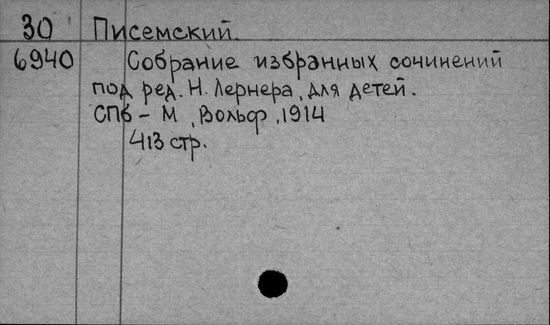 30 Писемский.
6940 Собрание избранных сочинений
под ред. Н. Лернера, для детей.
СПб - М, Вольф, 1914
413 стр.